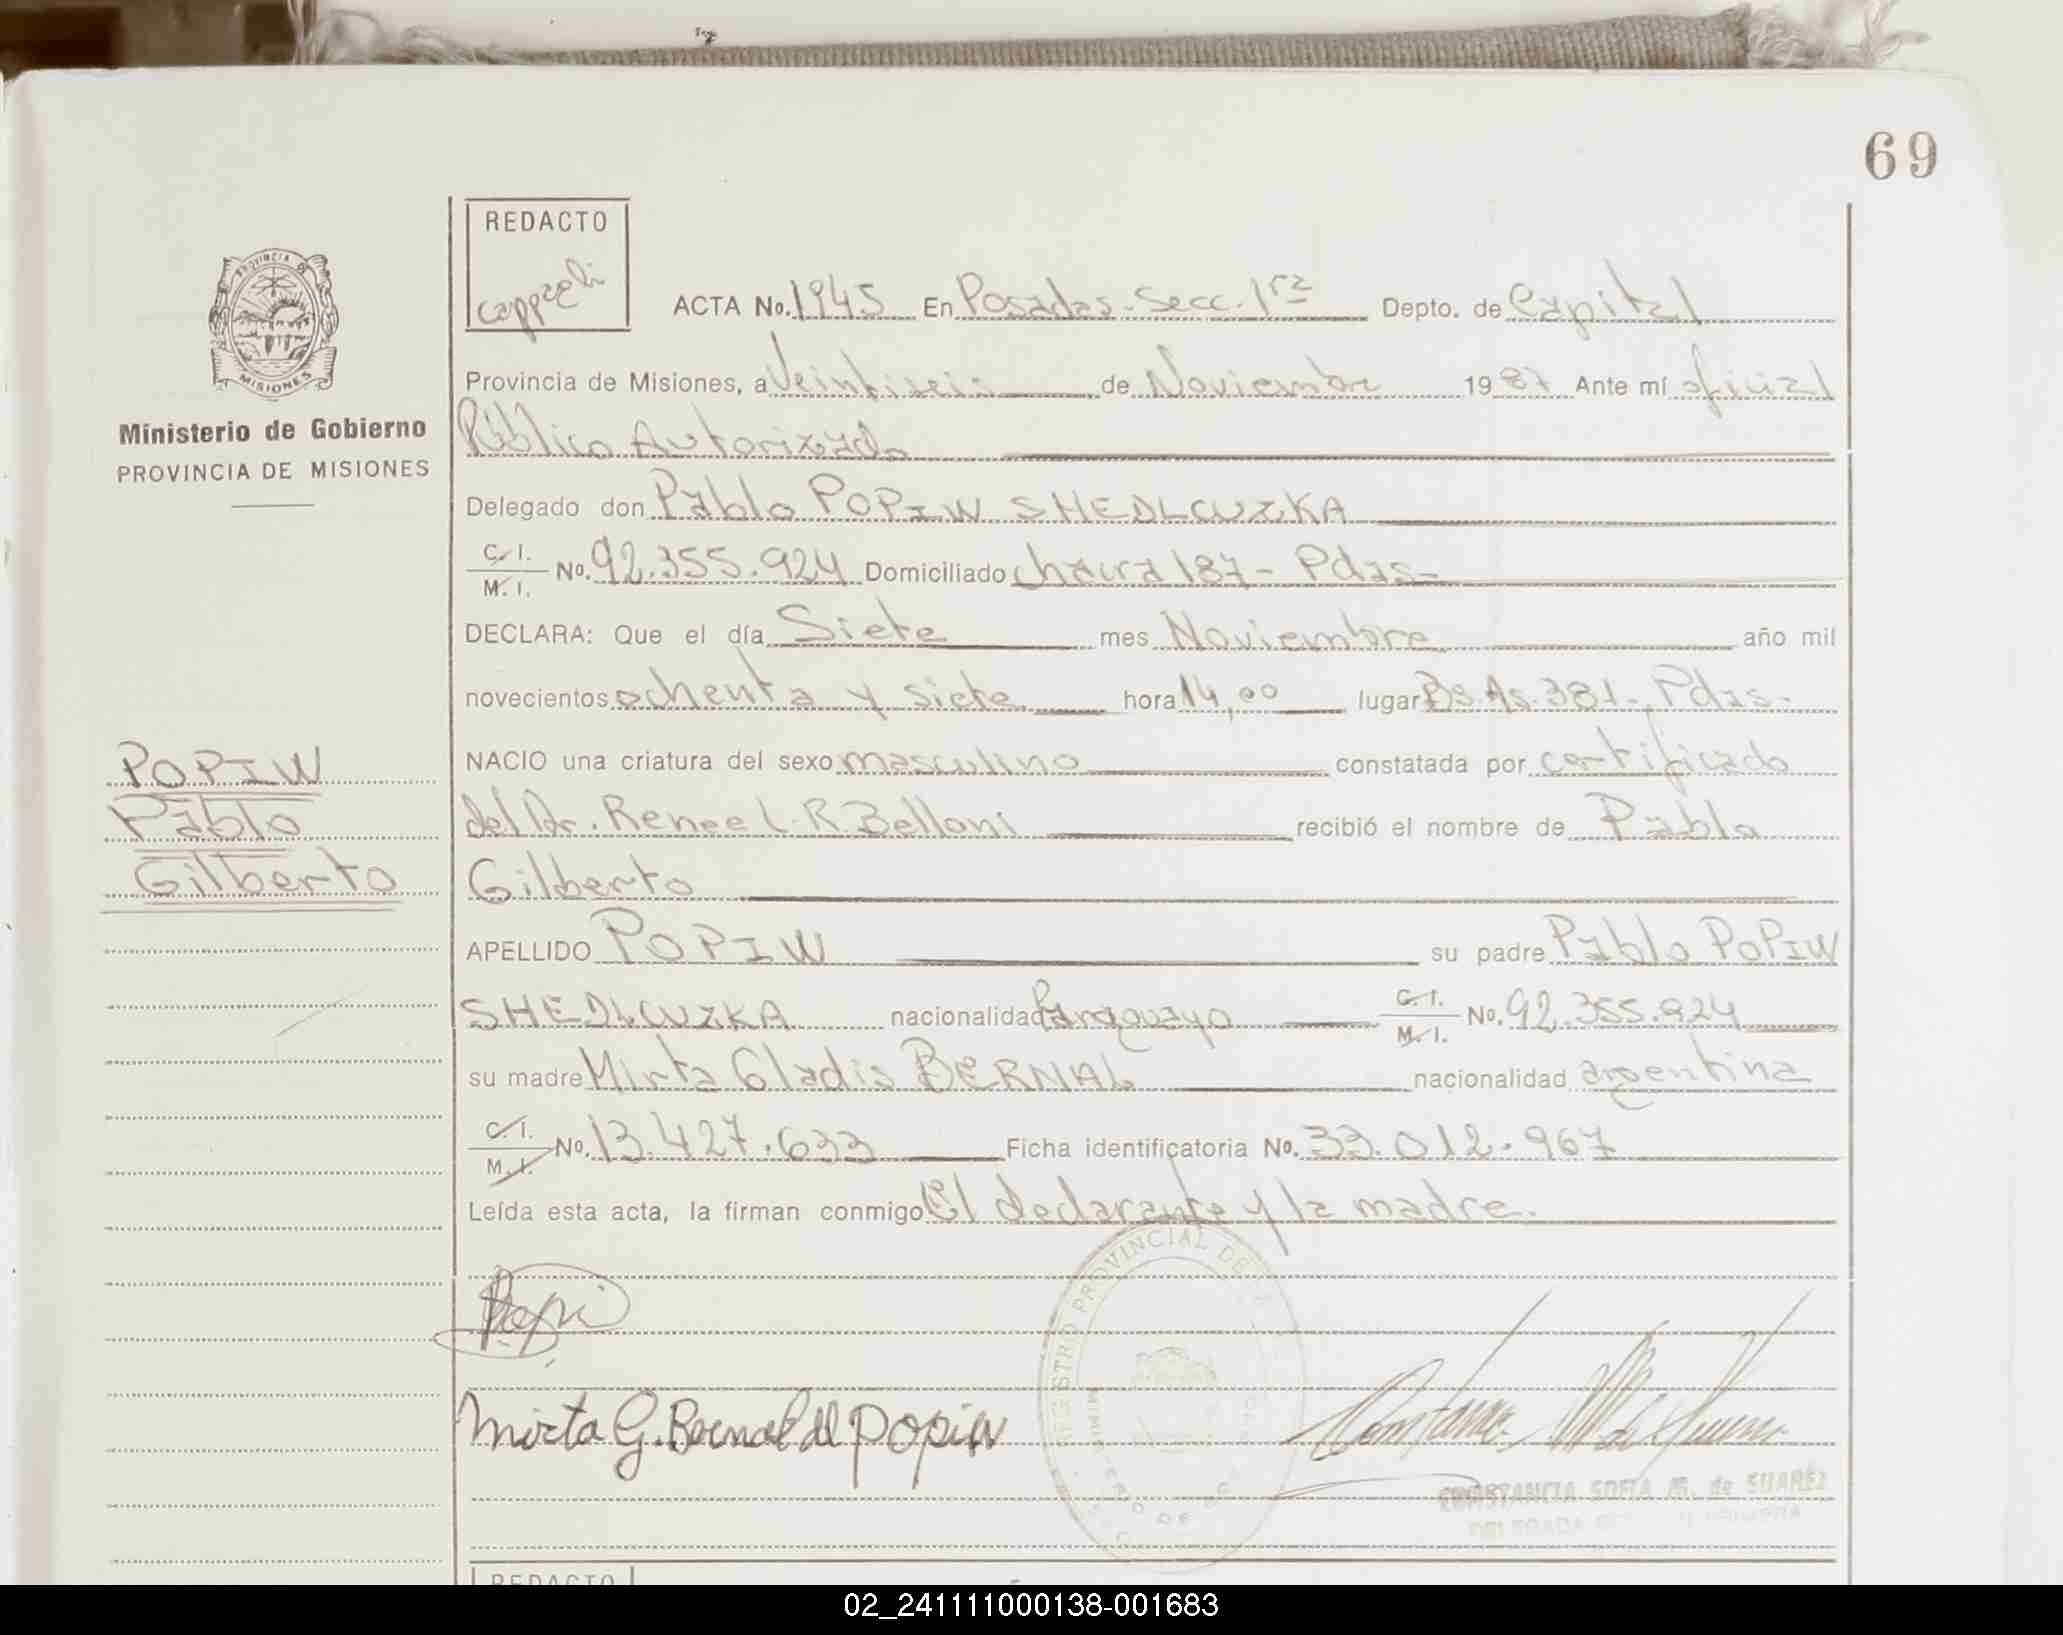 69
REDACTO
cappseli
ACTA No. 1945 En Posadas - Secc. 1ra Depto. de Capital
PROVINCIA DE
MISIONES
Ministerio de Gobierno
PROVINCIA DE MISIONES
Provincia de Misiones, a Veintiseis de Noviembre 1987 Ante mí oficial
Público Autorizado
Delegado don Pablo POPIW SHEDLCUZKA
C. I. M. I. No. 92.355.924 Domiciliado chacra 187 - Pdas-
DECLARA: Que el día Siete mes Noviembre año mil
novecientos ochenta y siete hora 14,00 lugar Bs.As. 381-, Pdas-
NACIO una criatura del sexo masculino constatada por certificado
del Dr. Renee L. R. Belloni recibió el nombre de Pablo
Gilberto
POPIW
Pablo
Gilberto
APELLIDO POPIW su padre Pablo POPIW
SHEDLCUZKA nacionalidad Paraguayo C. I. M. I. No. 92.355.924
su madre Mirta Gladis BERNAL nacionalidad argentina
C. I. M. I. No. 13.427.633 Ficha identificatoria No. 33.012.967
Leída esta acta, la firman conmigo El declarante y la madre.
REGISTRO PROVINCIAL DE
MINISTERIO DE
Mirta G. Bernal de Popiw
CONSTANCIA SOFIA M. de SUAREZ
DELEGADA
REDACTO
02_241111000138-001683